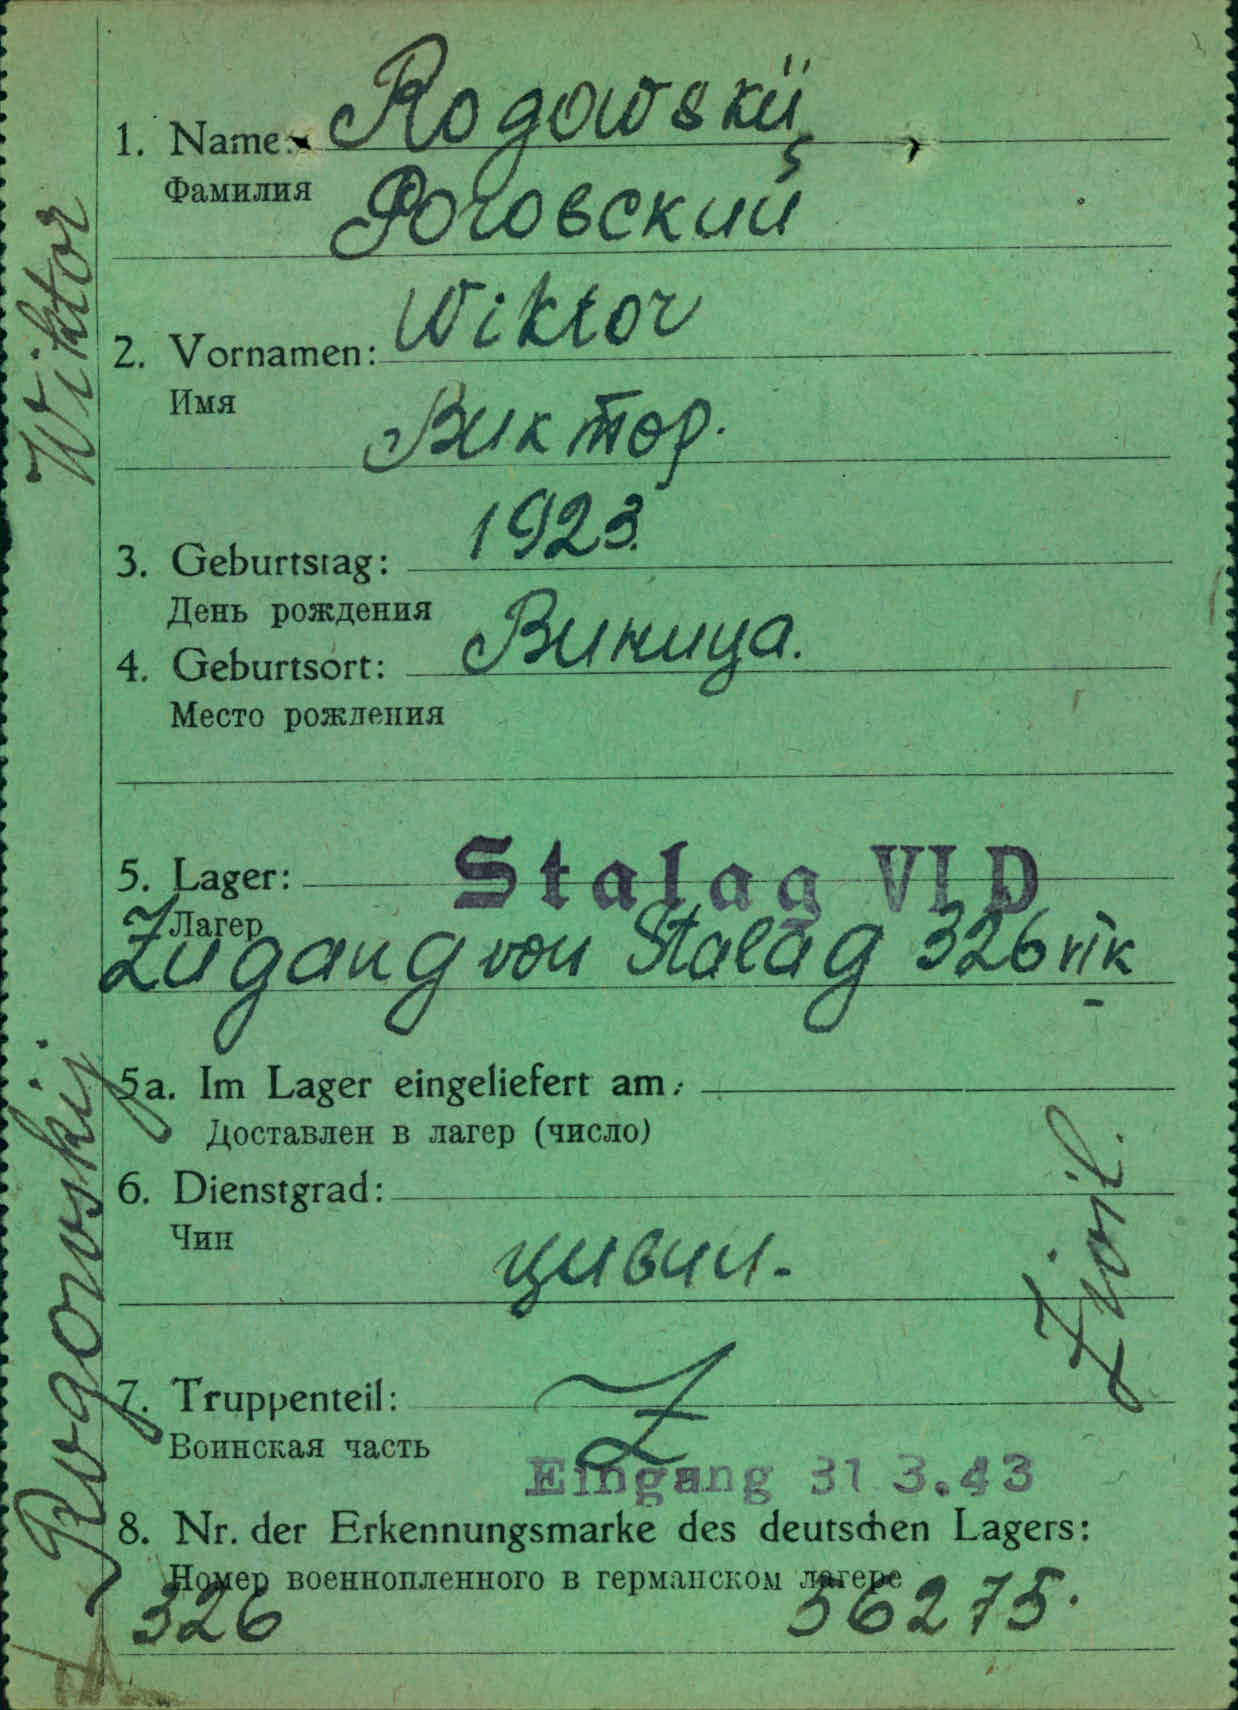 1. Name: Rogowskij
Фамилия Роговский
2. Vornamen: Wiktor
Имя Виктор.
3. Geburtstag: 1923.
День рождения
4. Geburtsort: Виница.
Место рождения
5. Lager: Stalag VI D
Лагер
Zugang von Stalag 326 VIK
5a. Im Lager eingeliefert am:
Доставлен в лагер (число)
6. Dienstgrad:
Чин цивил.
Zivil.
7. Truppenteil: Z
Воинская часть
Eingang 31 3.43
8. Nr. der Erkennungsmarke des deutschen Lagers:
Номер военнопленного в германском лагере
326 56275.
Rogowskij Wiktor